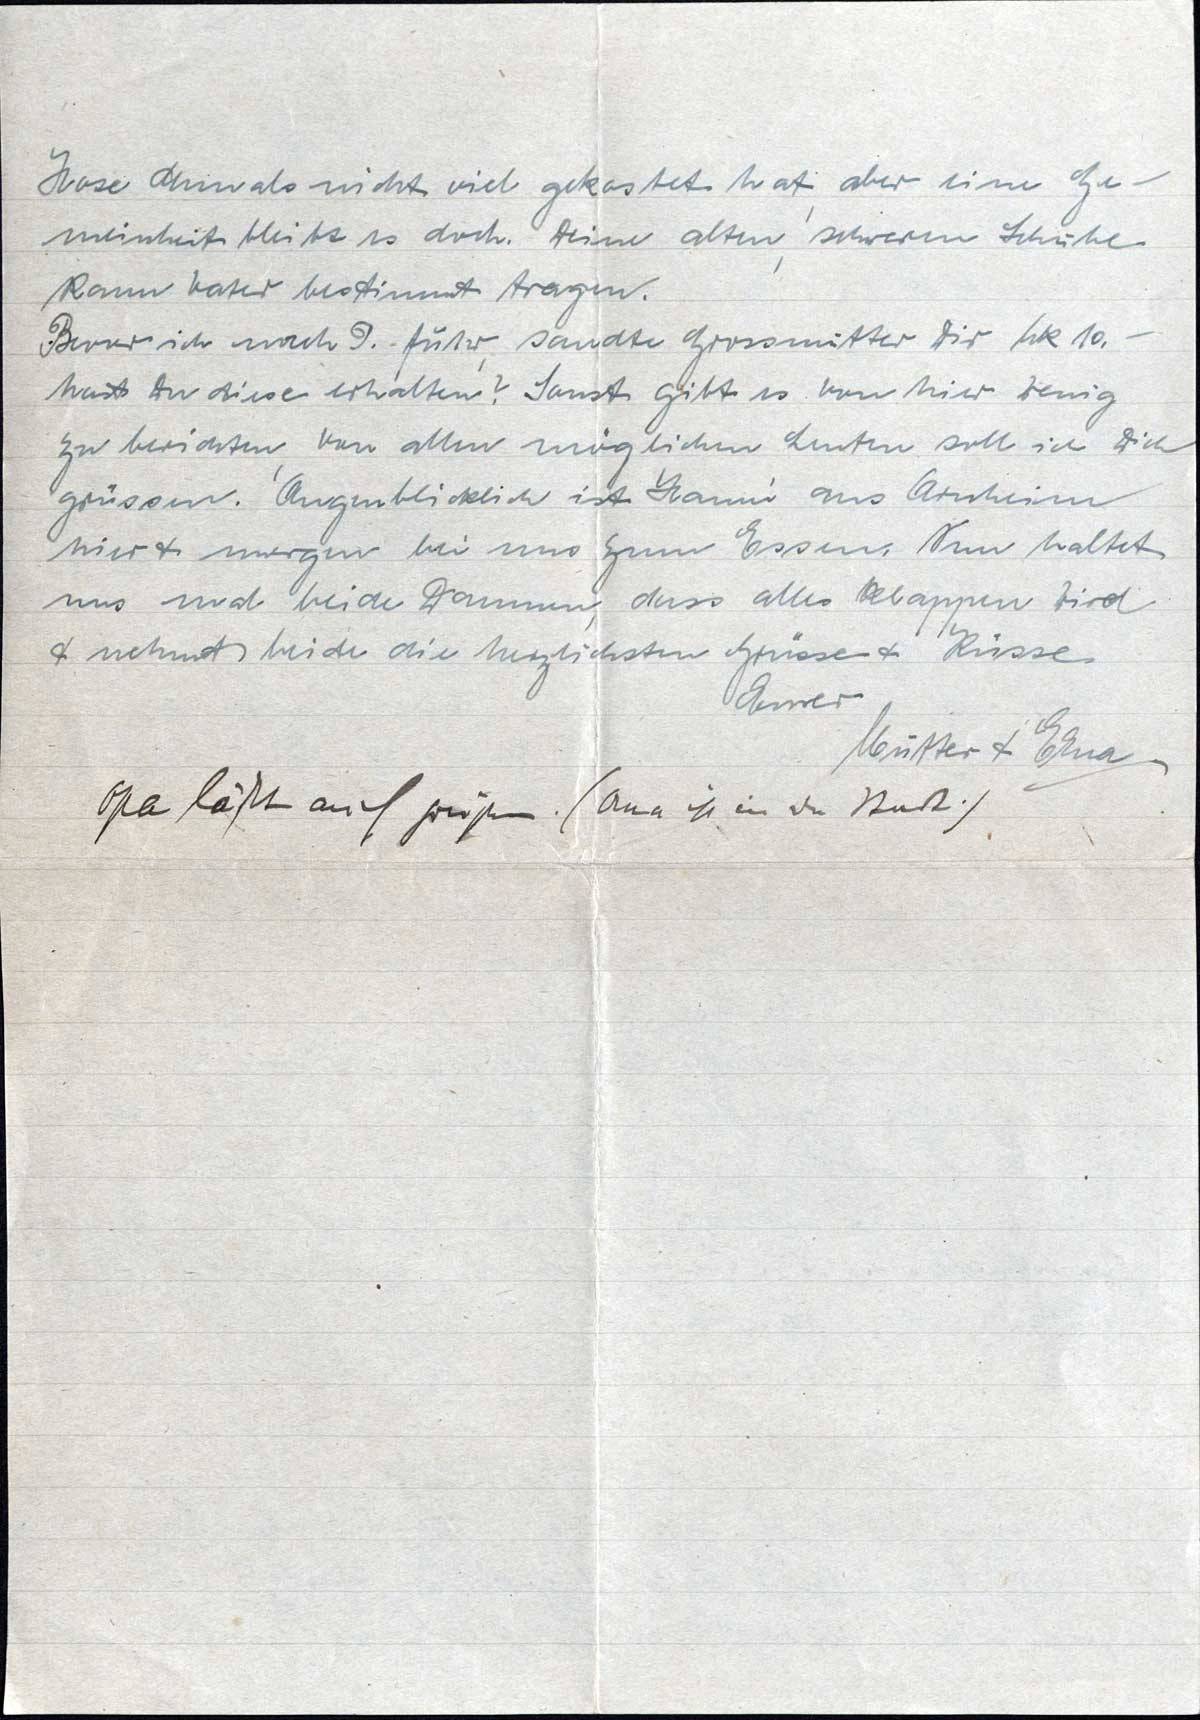 Hose damals nicht viel gekostet hat, aber eine Ge-
meinheit bleibt es doch. Deine alten, schweren Schuhe
kann Vater bestimmt tragen.
Bevor ich nach P. fuhr, sandte Grossmutter Dir Mk 10.-
hast Du diese erhalten? Sonst gibt es von hier wenig
zu berichten, von allen möglichen Leuten soll ich Dich
grüssen. Augenblicklich ist Hanni aus Arnheim
hier & morgen bei uns zum Essen. Nun haltet
uns mal beide Daumen, dass alles klappen wird
& nehmt beide die herzlichsten Grüsse & Küsse
Eurer
Mutter & Erna
Opa läßt auch grüßen. (Oma ist in der Stadt.)